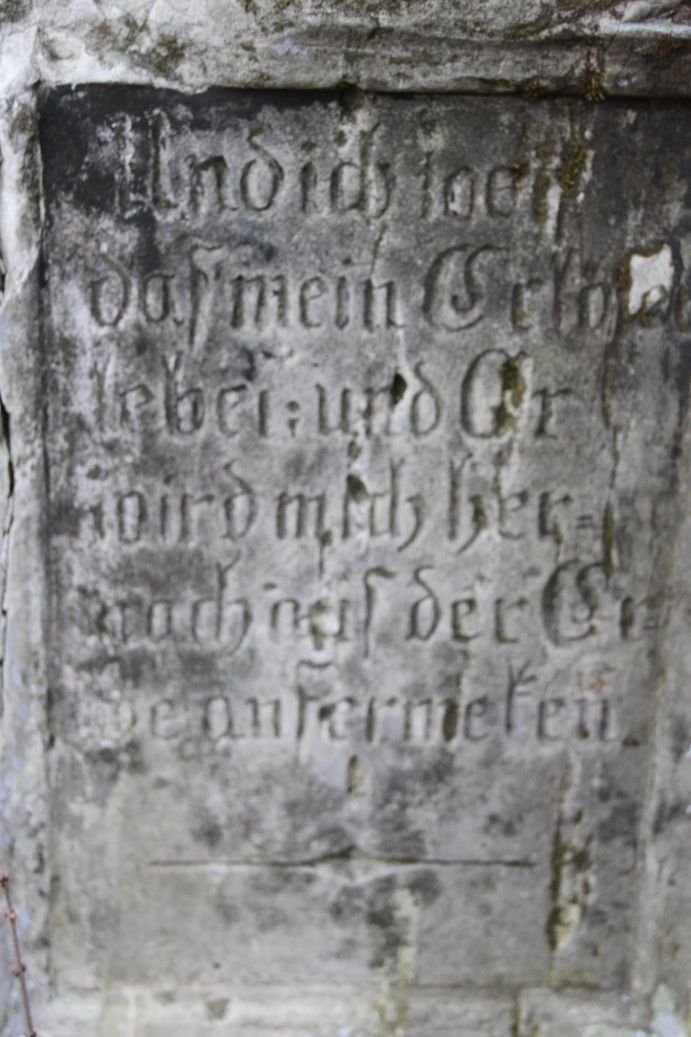 Und ich weis
das mein Erlöser
lebet: und Er
wird mich her=
nach aus der Er=
de auferweken.